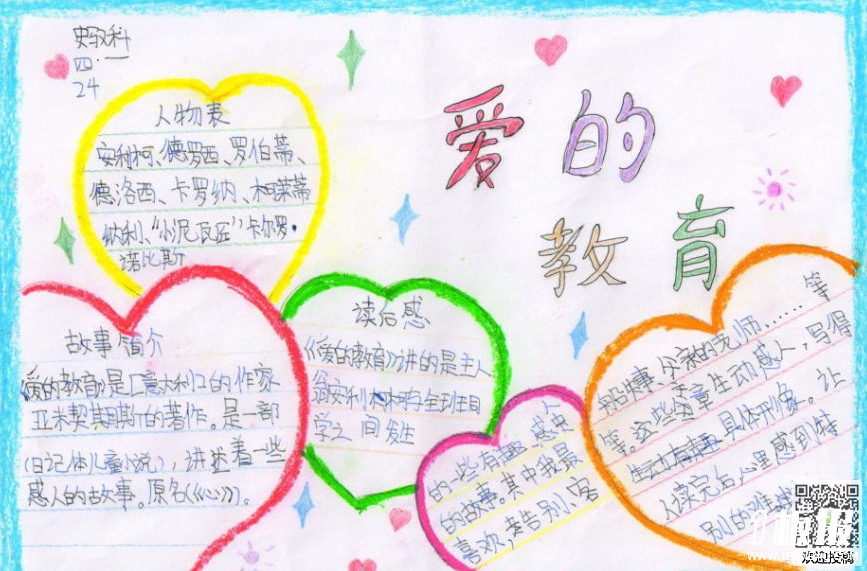 四·一
24
爱的
教育
人物表
安利柯、德罗西、罗伯蒂、
德洛西、卡罗纳、
纳利、“小泥瓦匠”卡尔罗·
诺比斯
故事简介
《爱的教育》是[意大利]的作家
亚米契斯的著作。是一部
(日记体儿童小说)，讲述着一些
感人的故事。原名《《心》》。
读后感
《爱的教育》讲的是主人
翁安利柯与全班同
学之间发生
的一些有趣、感人
的故事。其中我最
喜欢，老告别、客
事、父亲的老师……等
等。这些文章生动感人，写得
生动有趣、具体形象。让
人读完后心里感到特
别的难
欢迎投稿